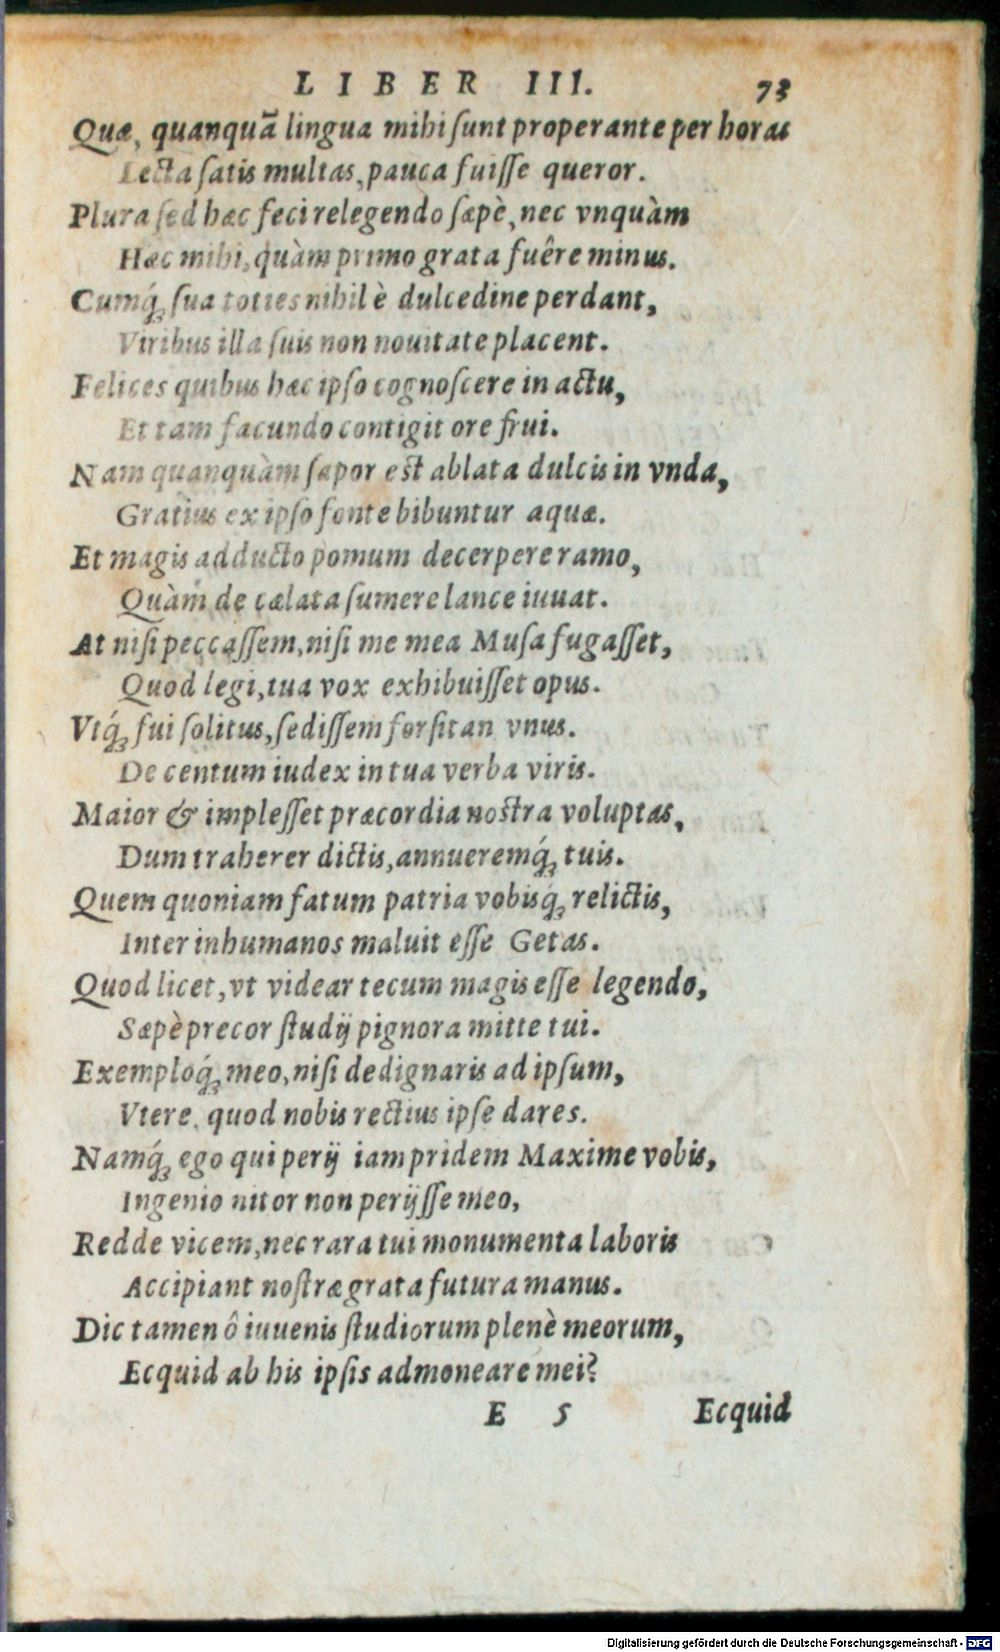 LIBER III. 73
Quæ, quanquā lingua mihi ſunt properante per horas
Lecta ſatis multas, pauca fuiſſe queror.
Plura ſed hæc feci relegendo ſæpè, nec vnquàm
Hæc mihi, quàm primo grata fuêre minus.
Cumq́; ſua toties nihil è dulcedine perdant,
Viribus illa ſuis non nouitate placent.
Felices quibus hæc ipſo cognoſcere in actu,
Et tam facundo contigit ore frui.
Nam quanquàm ſapor est ablata dulcis in vnda,
Gratius ex ipſo fonte bibuntur aquæ.
Et magis adducto pomum decerpere ramo,
Quàm de cælata ſumere lance iuuat.
At niſi peccaſſem, niſi me mea Muſa fugaſſet,
Quod legi, tua vox exhibuiſſet opus.
Vtq́; fui ſolitus, ſediſſem forſitan vnus.
De centum iudex in tua verba viris.
Maior & impleſſet præcordia nostra voluptas,
Dum traherer dictis, annueremq́; tuis.
Quem quoniam fatum patria vobisq́; relictis,
Inter inhumanos maluit eſſe Getas.
Quod licet, vt videar tecum magis eſſe legendo,
Sæpè precor ſtudij pignora mitte tui.
Exemploq́; meo, niſi dedignaris ad ipſum,
Vtere, quod nobis rectius ipſe dares.
Namq́; ego qui perij iampridem Maxime vobis,
Ingenio nitor non perijſſe meo,
Redde vicem, nec rara tui monumenta laboris
Accipiant noſtræ grata futura manus.
Dic tamen ô iuuenis ſtudiorum plenè meorum,
Ecquid ab his ipſis admoneare mei?
E 5 Ecquid
Digitalisierung gefördert durch die Deutsche Forschungsgemeinschaft - DFG